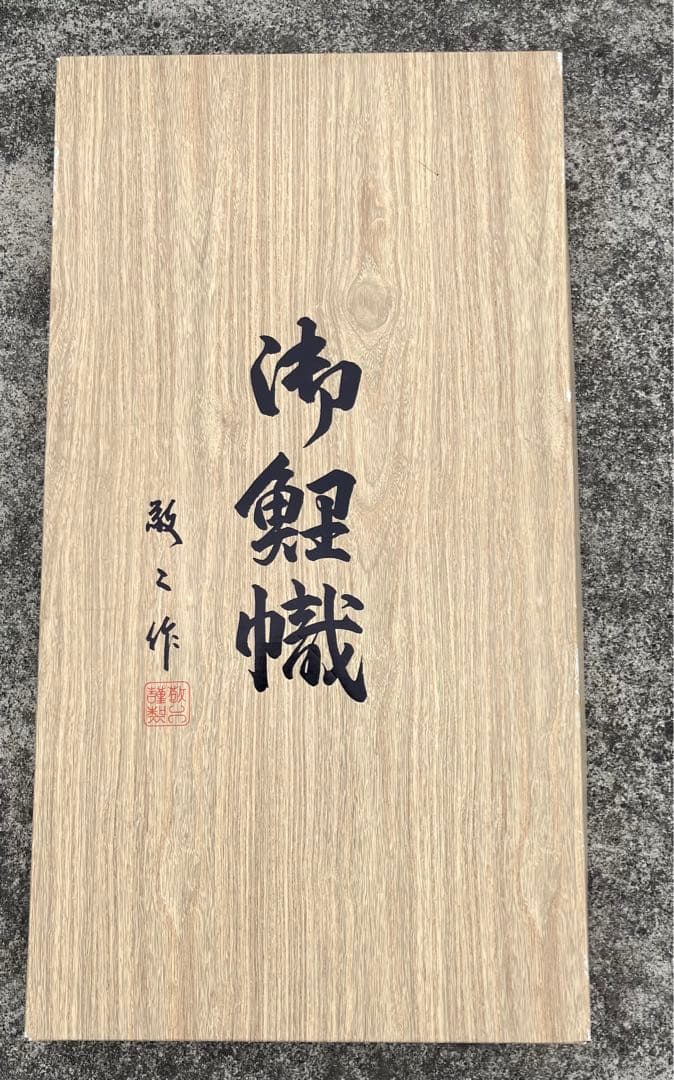 御鯉幟
敬二作
敬二謹製